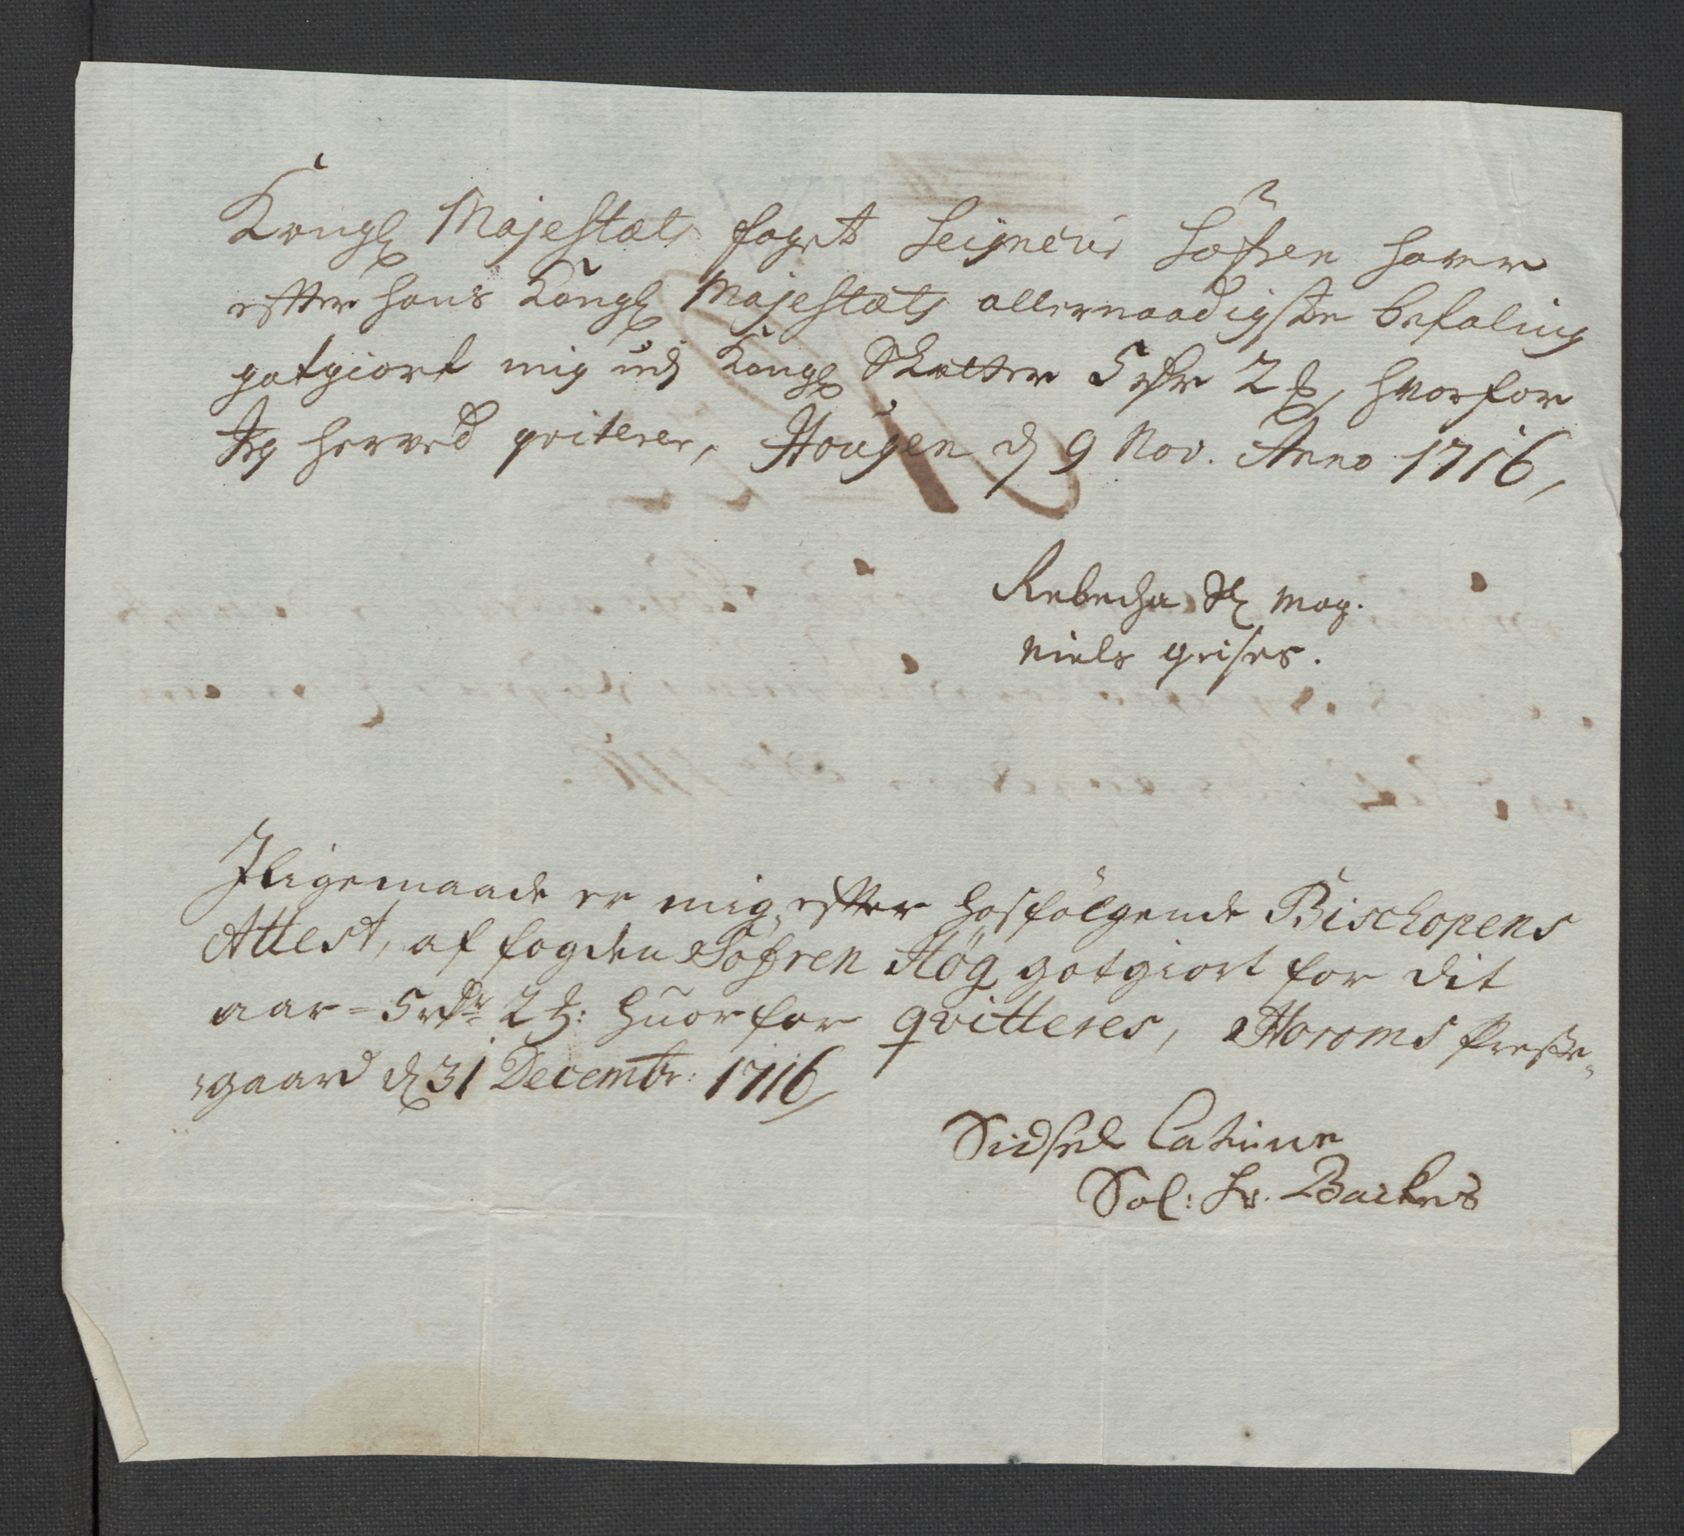 Kongl Majestæts fogt Seigneur Söfren haver
efter hans Kongl Majestæts allernaadigste befaling
gotgiort mig udj Kongl Skatter 5 rdr 2 ß, hvorfor
Jeg herved qviterer, Hougen d 9 Nov. Anno 1716,
Rebecha Sl Mag.
Niels grises.
Jligemaade er mig efter hosfölgende Bischopens
Attest, af fogden Söfren Høg gotgiort for dit
aar = 5 rdr 2 ß: huorfor qvitteres, Haroms Preste,
gaard d 31 Decembr: 1716,
Sidsel Catrine
Sal: Hr. Backes